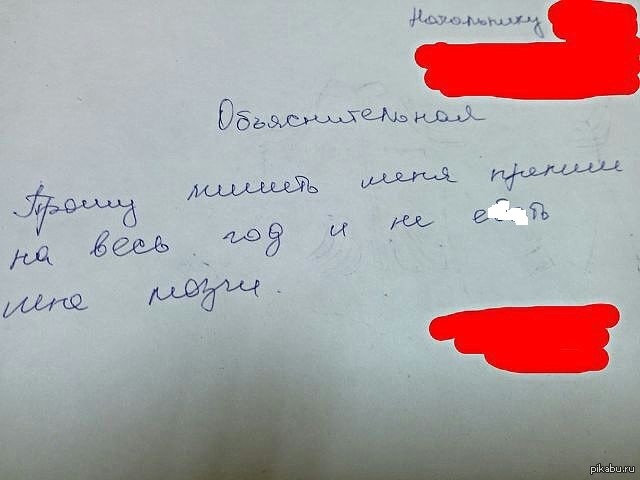 Начальнику
Объяснительная
Прошу лишить меня премии
на весь год и не е ть
мне мозги.
pikabu.ru